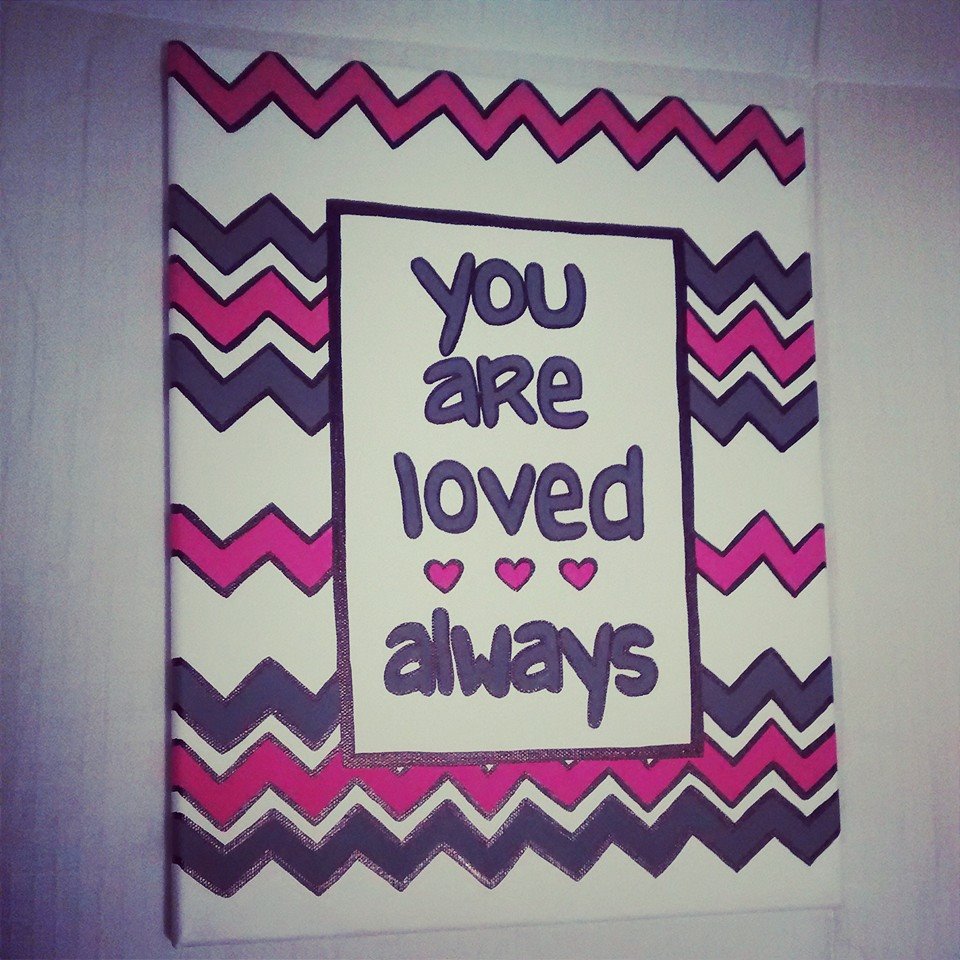 you
are
loved
always